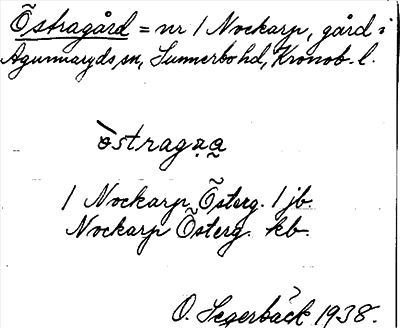 Östragård = nr 1 Nockarp, gård i
Agunnaryds sn, Sunnerbo hd, Kronob. l.
òstragạa̰
1 Nockarp Österg. 1 jb.
Nockarp Österg. kb.
O. Segerbäck 1938.